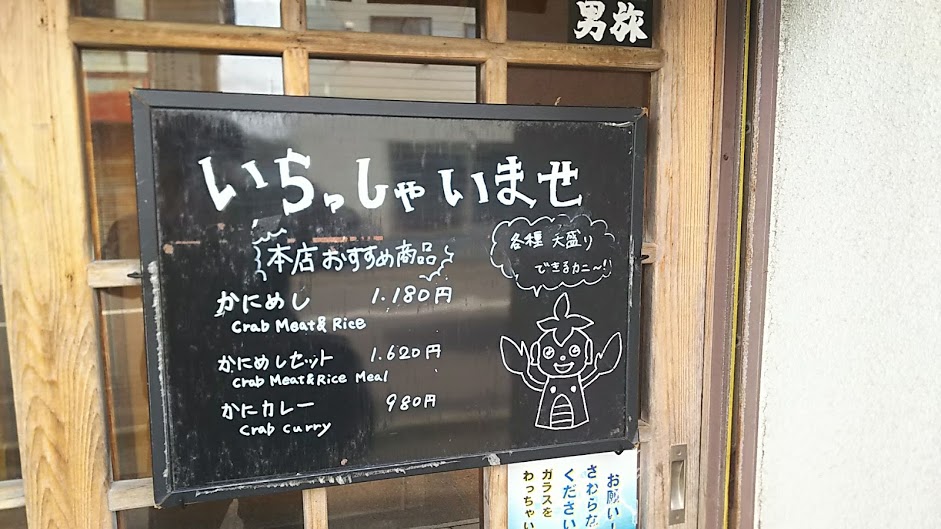 男旅
いらっしゃいませ
本店おすすめ商品
かにめし 1.180円
Crab Meat & Rice
かにめしセット 1.620円
Crab Meat & Rice Meal
かにカレー 980円
Crab Curry
各種 大盛り
できるカニ〜!
お願い
さわらな
ください
ガラスを
わっちゃい